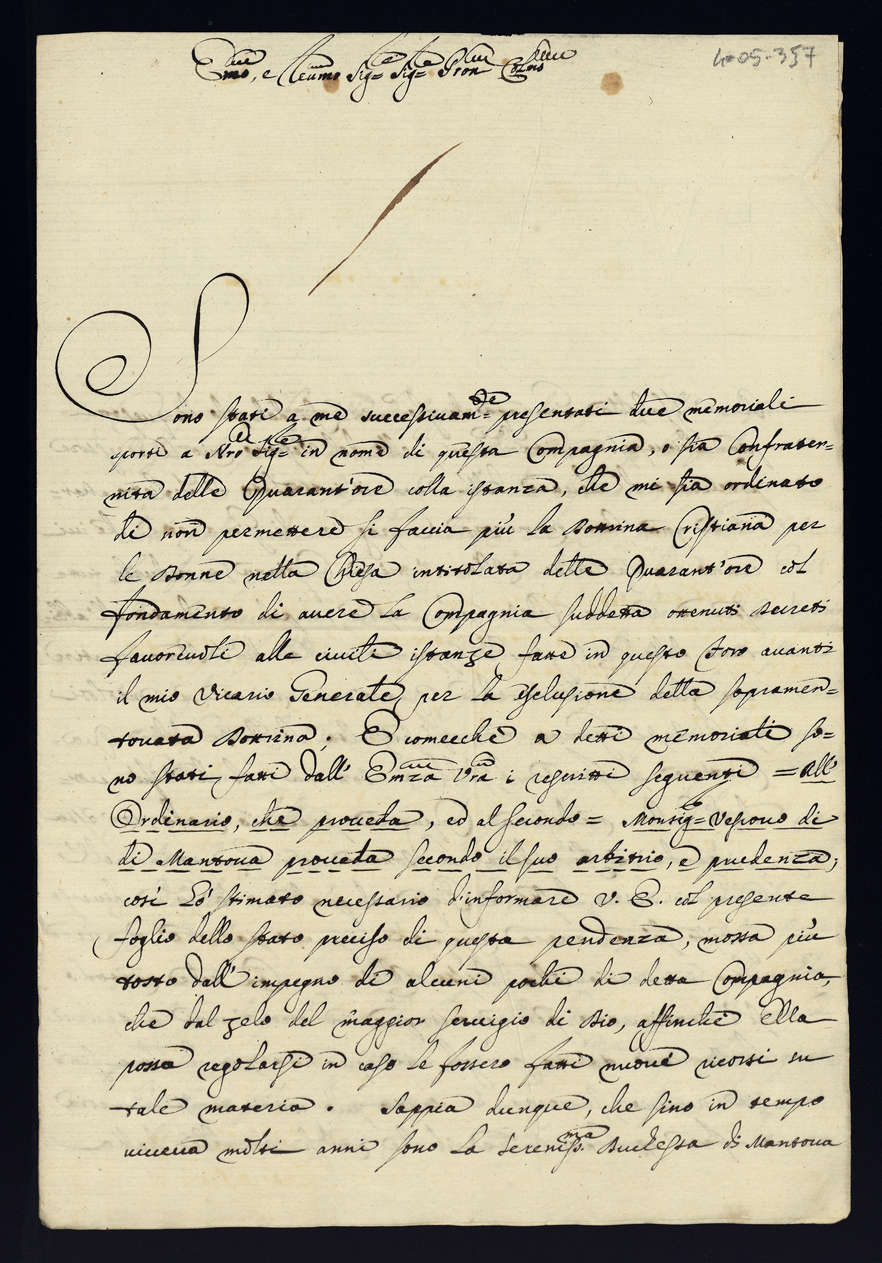 4-05-357
Emo, e Rmo Sig.e Sig.e Pron Colmo
Sono stati a me successivam.te presentati due memoriali
porti a Nro Sig.e in nome di questa Compagnia, o sia Confrater=
nita delle Quarant'ore colla istanza, che mi sia ordinato
di non permettere si faccia più la Dottrina Cristiana per
le Donne nella Chiesa intitolata delle Quarant'ore col
fondamento di avere la Compagnia suddetta ottenuti Decreti
favorevoli alle civili istanze fatte in questo Foro avanti
il mio Vicario Generale, per la esclusione della sopramen=
tovata Dottrina. E comecchè a detti memoriali so=
no stati fatti dall' Emza Vra i rescritti seguenti = All'
Ordinario, che proveda, ed al secondo = Monsig.e Vescovo di
di Mantova proveda secondo il suo arbitrio, e prudenza;
così hò stimato necessario d'informare V. E. col presente
foglio dello stato preciso di questa pendenza, mossa più
tosto dall' impegno di alcuni pochi di detta Compagnia,
che dal zelo del maggior servigio di Dio, affinchè ella
possa regolarsi in caso le fossero fatti nuovi ricorsi su
tale materia. Sappia dunque, che sino in tempo
viveva molti anni sono la Sereniss.ma Duchessa di Mantova